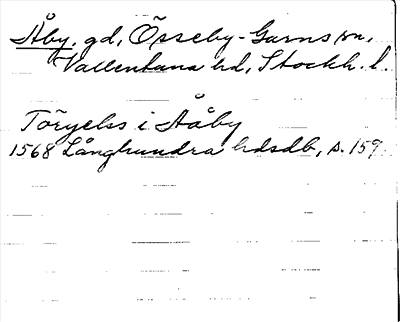 Åby, gd, Össeby-Garns sn,
Vallentuna hd, Stockh. l.
Töryelss i Aåby
1568 Långhundra hdsdb, s. 159